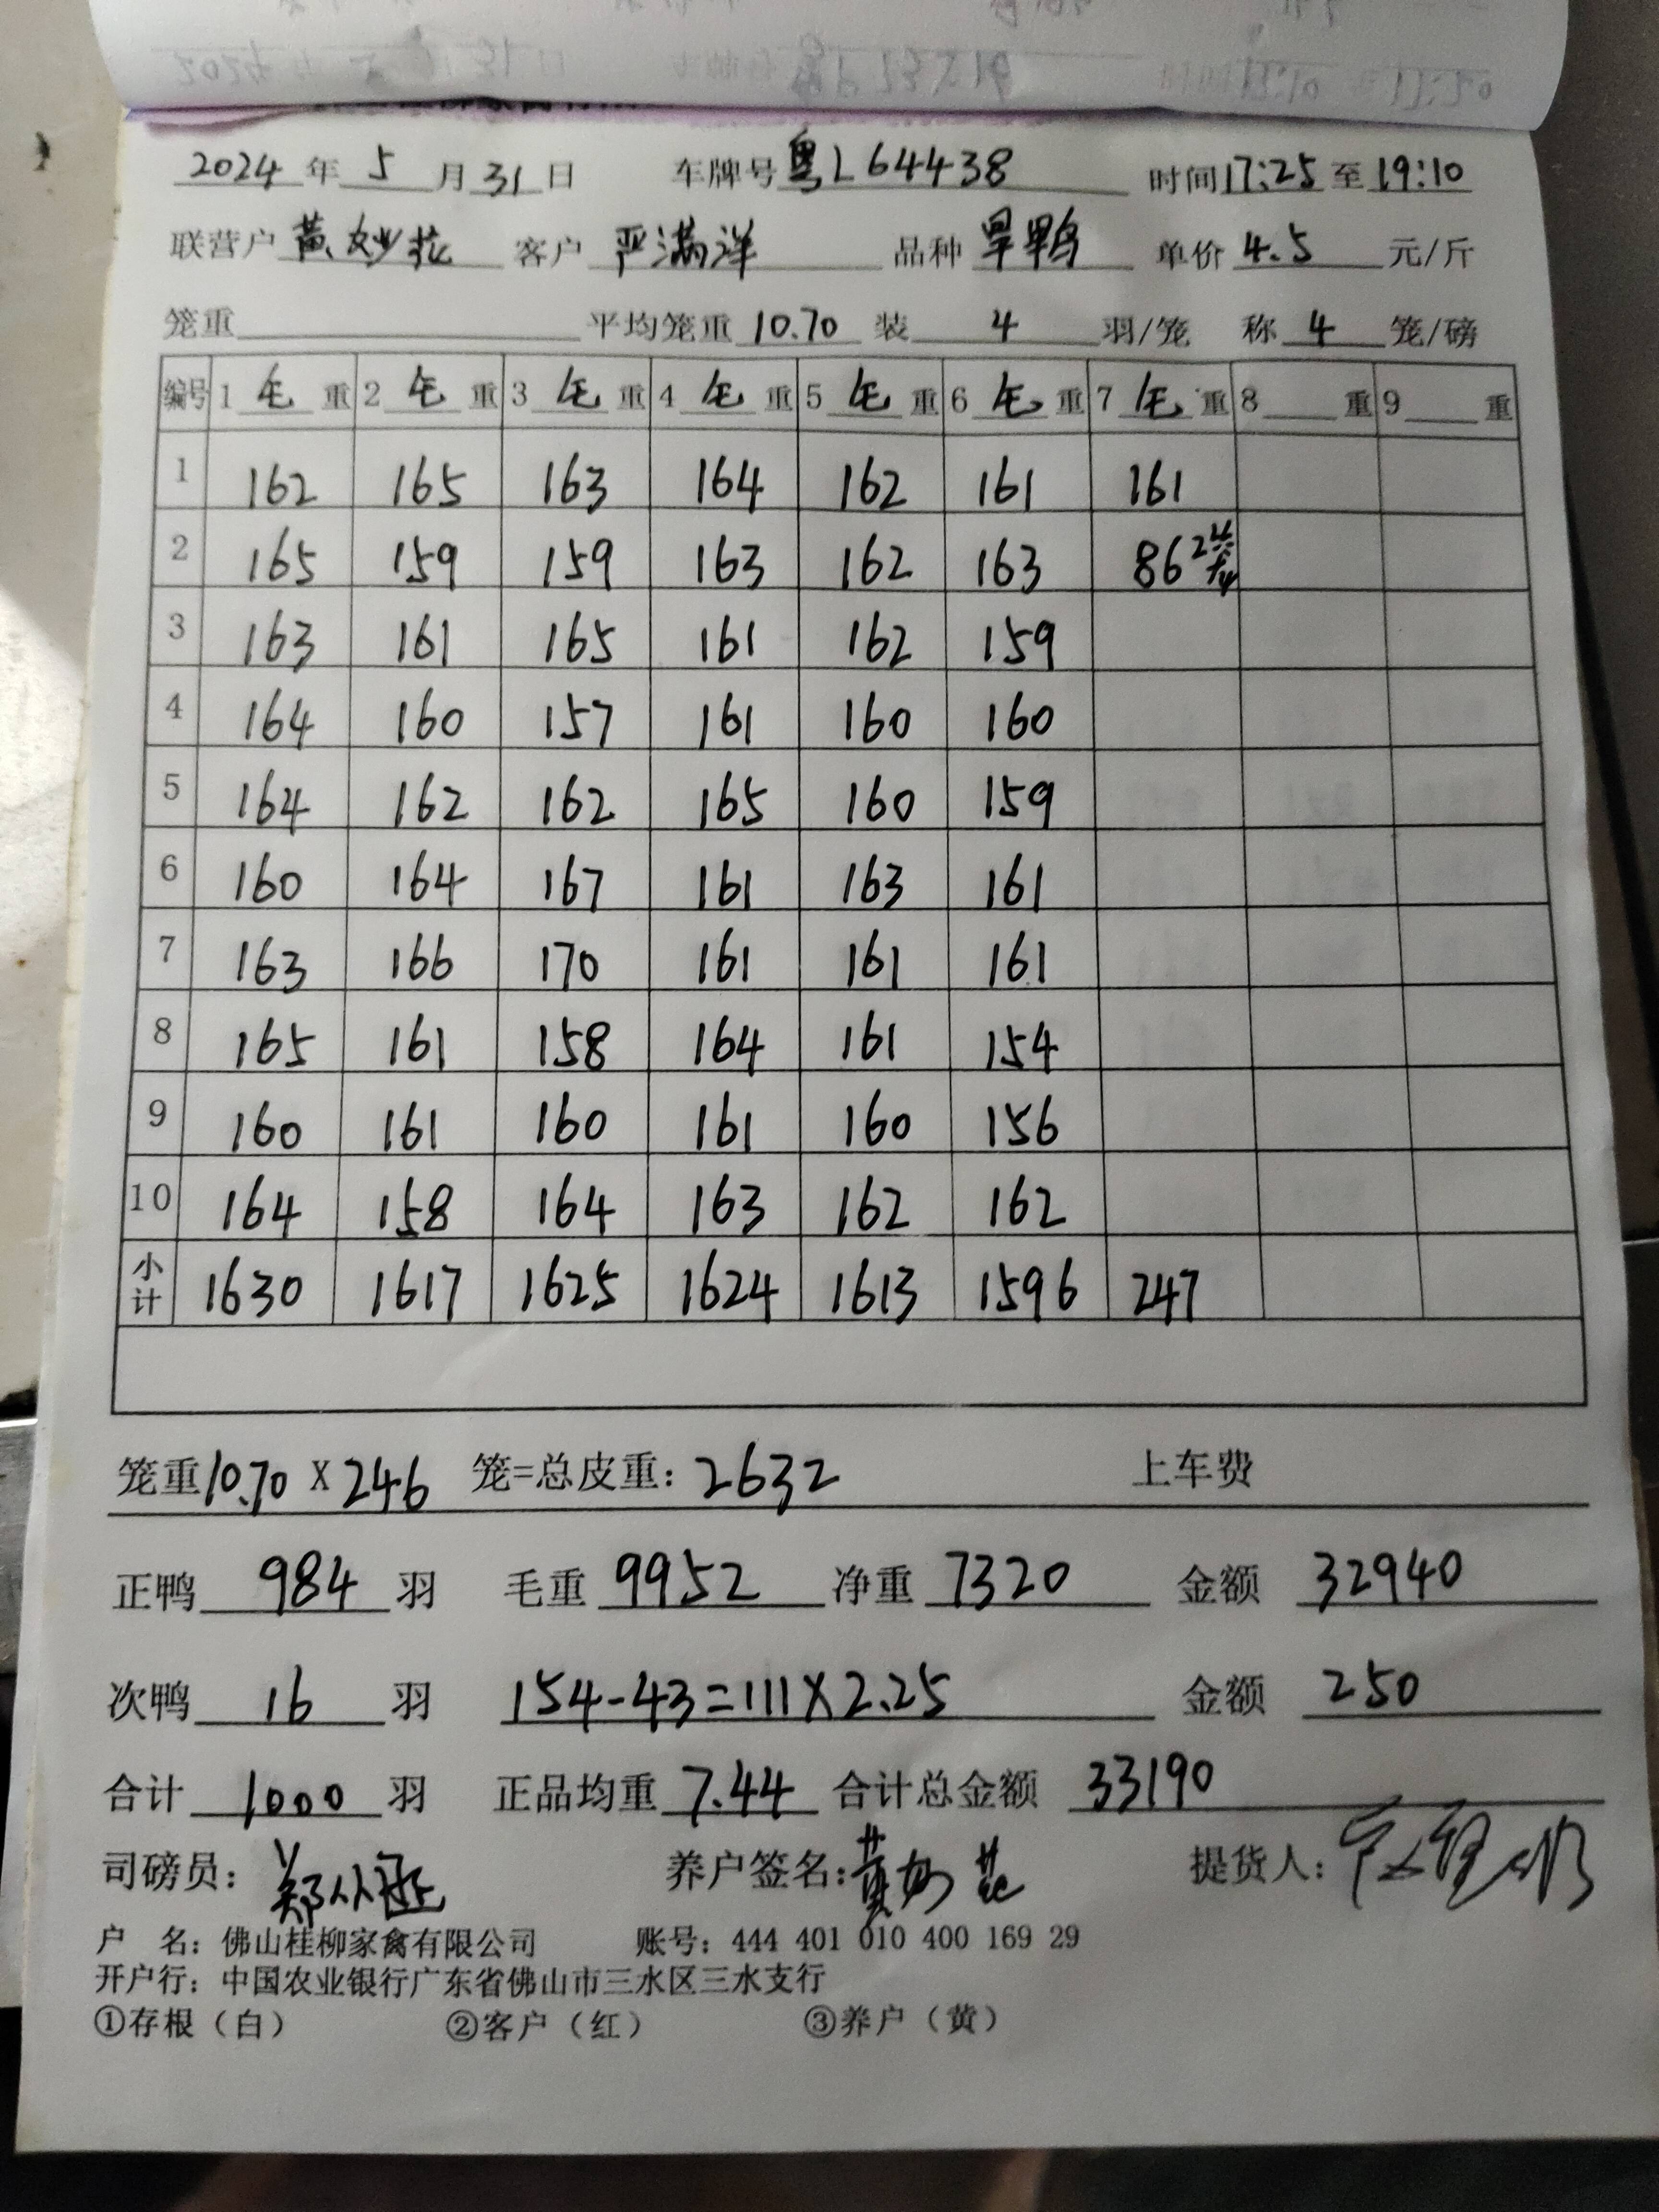 2024年5月31日 车牌号粤L64438 时间17:25至19:10
联营户黄妙花 客户严满洋 品种旱鸭 单价4.5元/斤
笼重 平均笼重10.70装4羽/笼 称4笼/磅
编号 1毛重 2毛重 3毛重 4毛重 5毛重 6毛重 7毛重 8重 9重
1 162 165 163 164 162 161 161
2 165 159 159 163 162 163 86 2
3 163 161 165 161 162 159
4 164 160 157 161 160 160
5 164 162 162 165 160 159
6 160 164 167 161 163 161
7 163 166 170 161 161 161
8 165 161 158 164 161 154
9 160 161 160 161 160 156
10 164 158 164 163 162 162
小计 1630 1617 1625 1624 1613 1596 247
笼重10.70X246笼=总皮重:2632 上车费
正鸭984羽 毛重9952净重7320 金额32940
次鸭16羽 154-43=111X2.25 金额250
合计1000羽 正品均重7.44合计总金额33190
司磅员: 养户签名:黄妙花 提货人:
户 名:佛山桂柳家禽有限公司 账号:444 401 010 400 169 29
开户行:中国农业银行广东省佛山市三水区三水支行
①存根(白) ②客户(红) ③养户(黄)